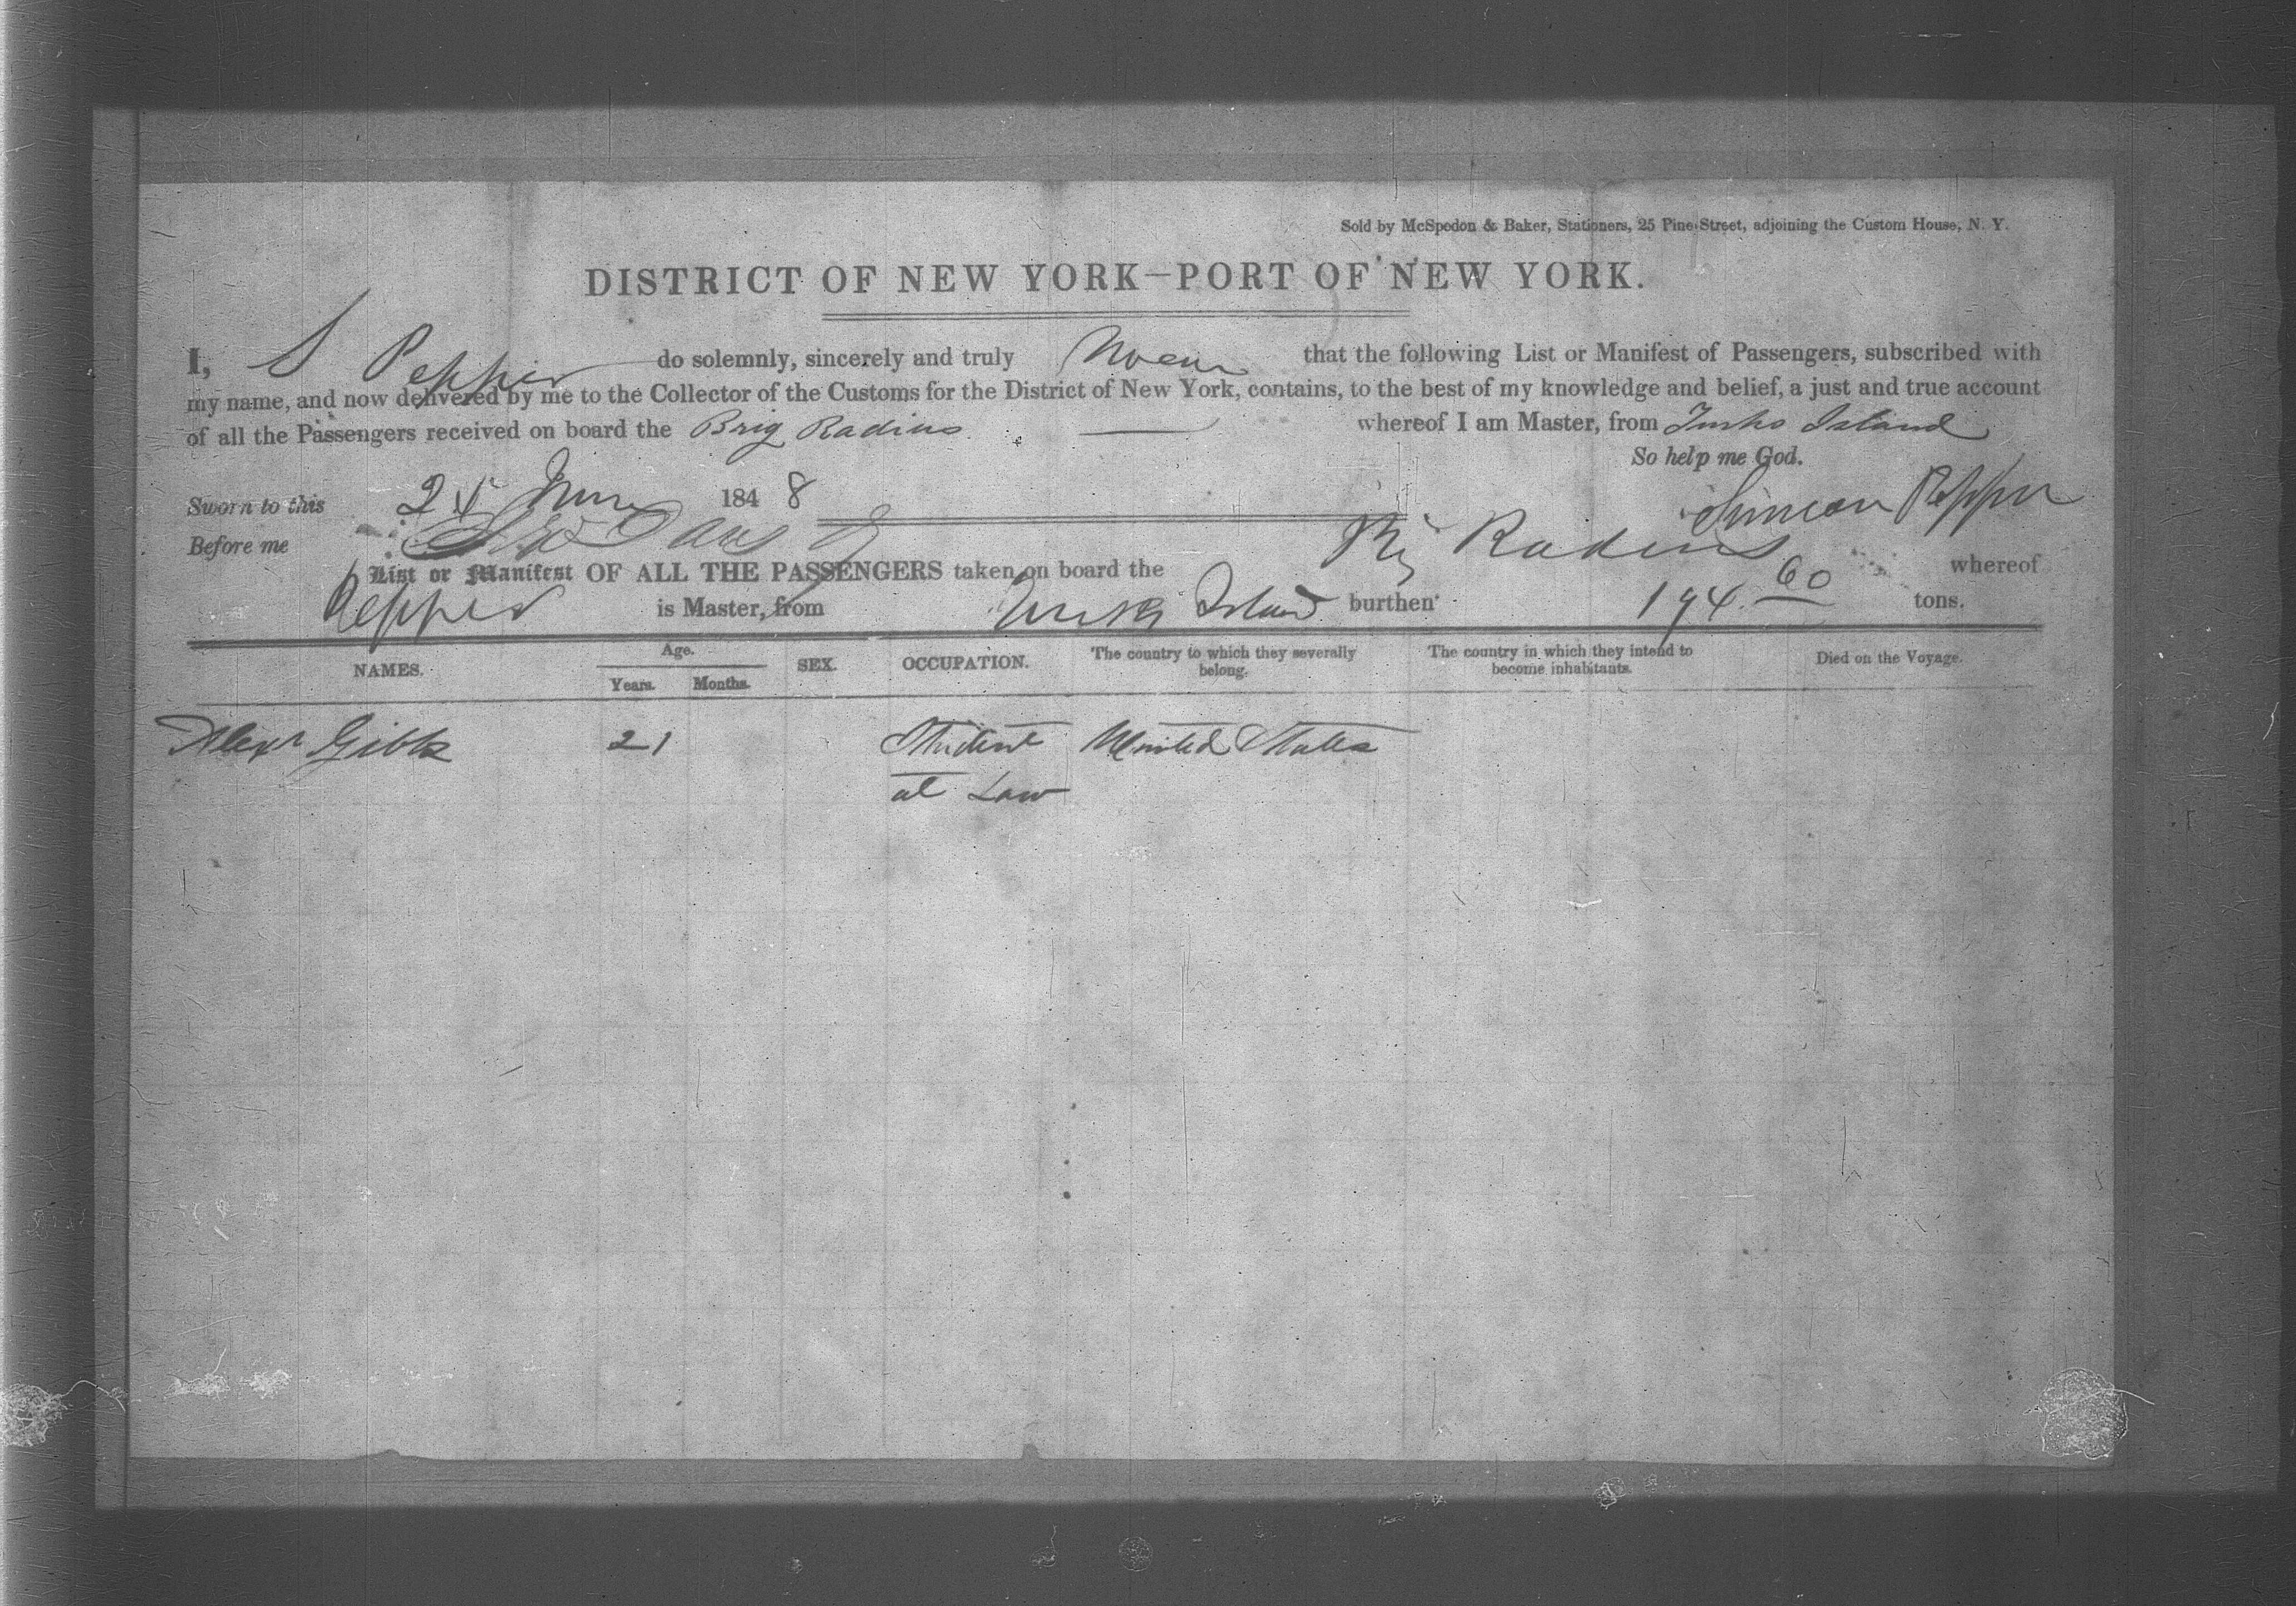 Sold by McSpedon & Baker, Stationers, 25 Pine Street, adjoining the Custom House, N. Y.
DISTRICT OF NEW YORK—PORT OF NEW YORK.
I, S Pepper do solemnly, sincerely and truly swear that the following List or Manifest of Passengers, subscribed with
my name, and now delivered by me to the Collector of the Customs for the District of New York, contains, to the best of my knowledge and belief, a just and true account
of all the Passengers received on board the Brig Radius whereof I am Master, from Turks Island
So help me God.
Sworn to this 24 June 1848 Simeon Pepper
Before me
List or Manifest OF ALL THE PASSENGERS taken on board the Brig Radius whereof
Pepper is Master, from Turks Island burthen 194 60 tons.
NAMES. Age. Years. Months. SEX. OCCUPATION. The country to which they severally belong. The country in which they intend to become inhabitants. Died on the Voyage.
Alexr Gibbs 21 Student United States
at Law